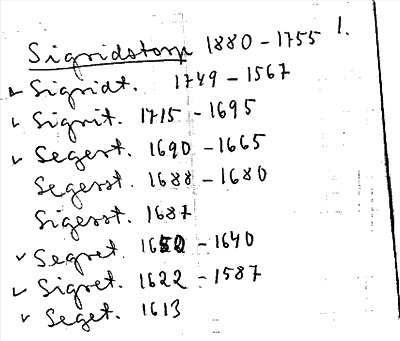 Sigridstorp 1880-1755 1.
Sigridt. 1749-1567
Sigrit. 1715-1695
Segert. 1690-1665
Segerst. 1688-1680
Sigerst. 1687
Segret. 1650-1640
Sigret. 1622-1587
Seget. 1613